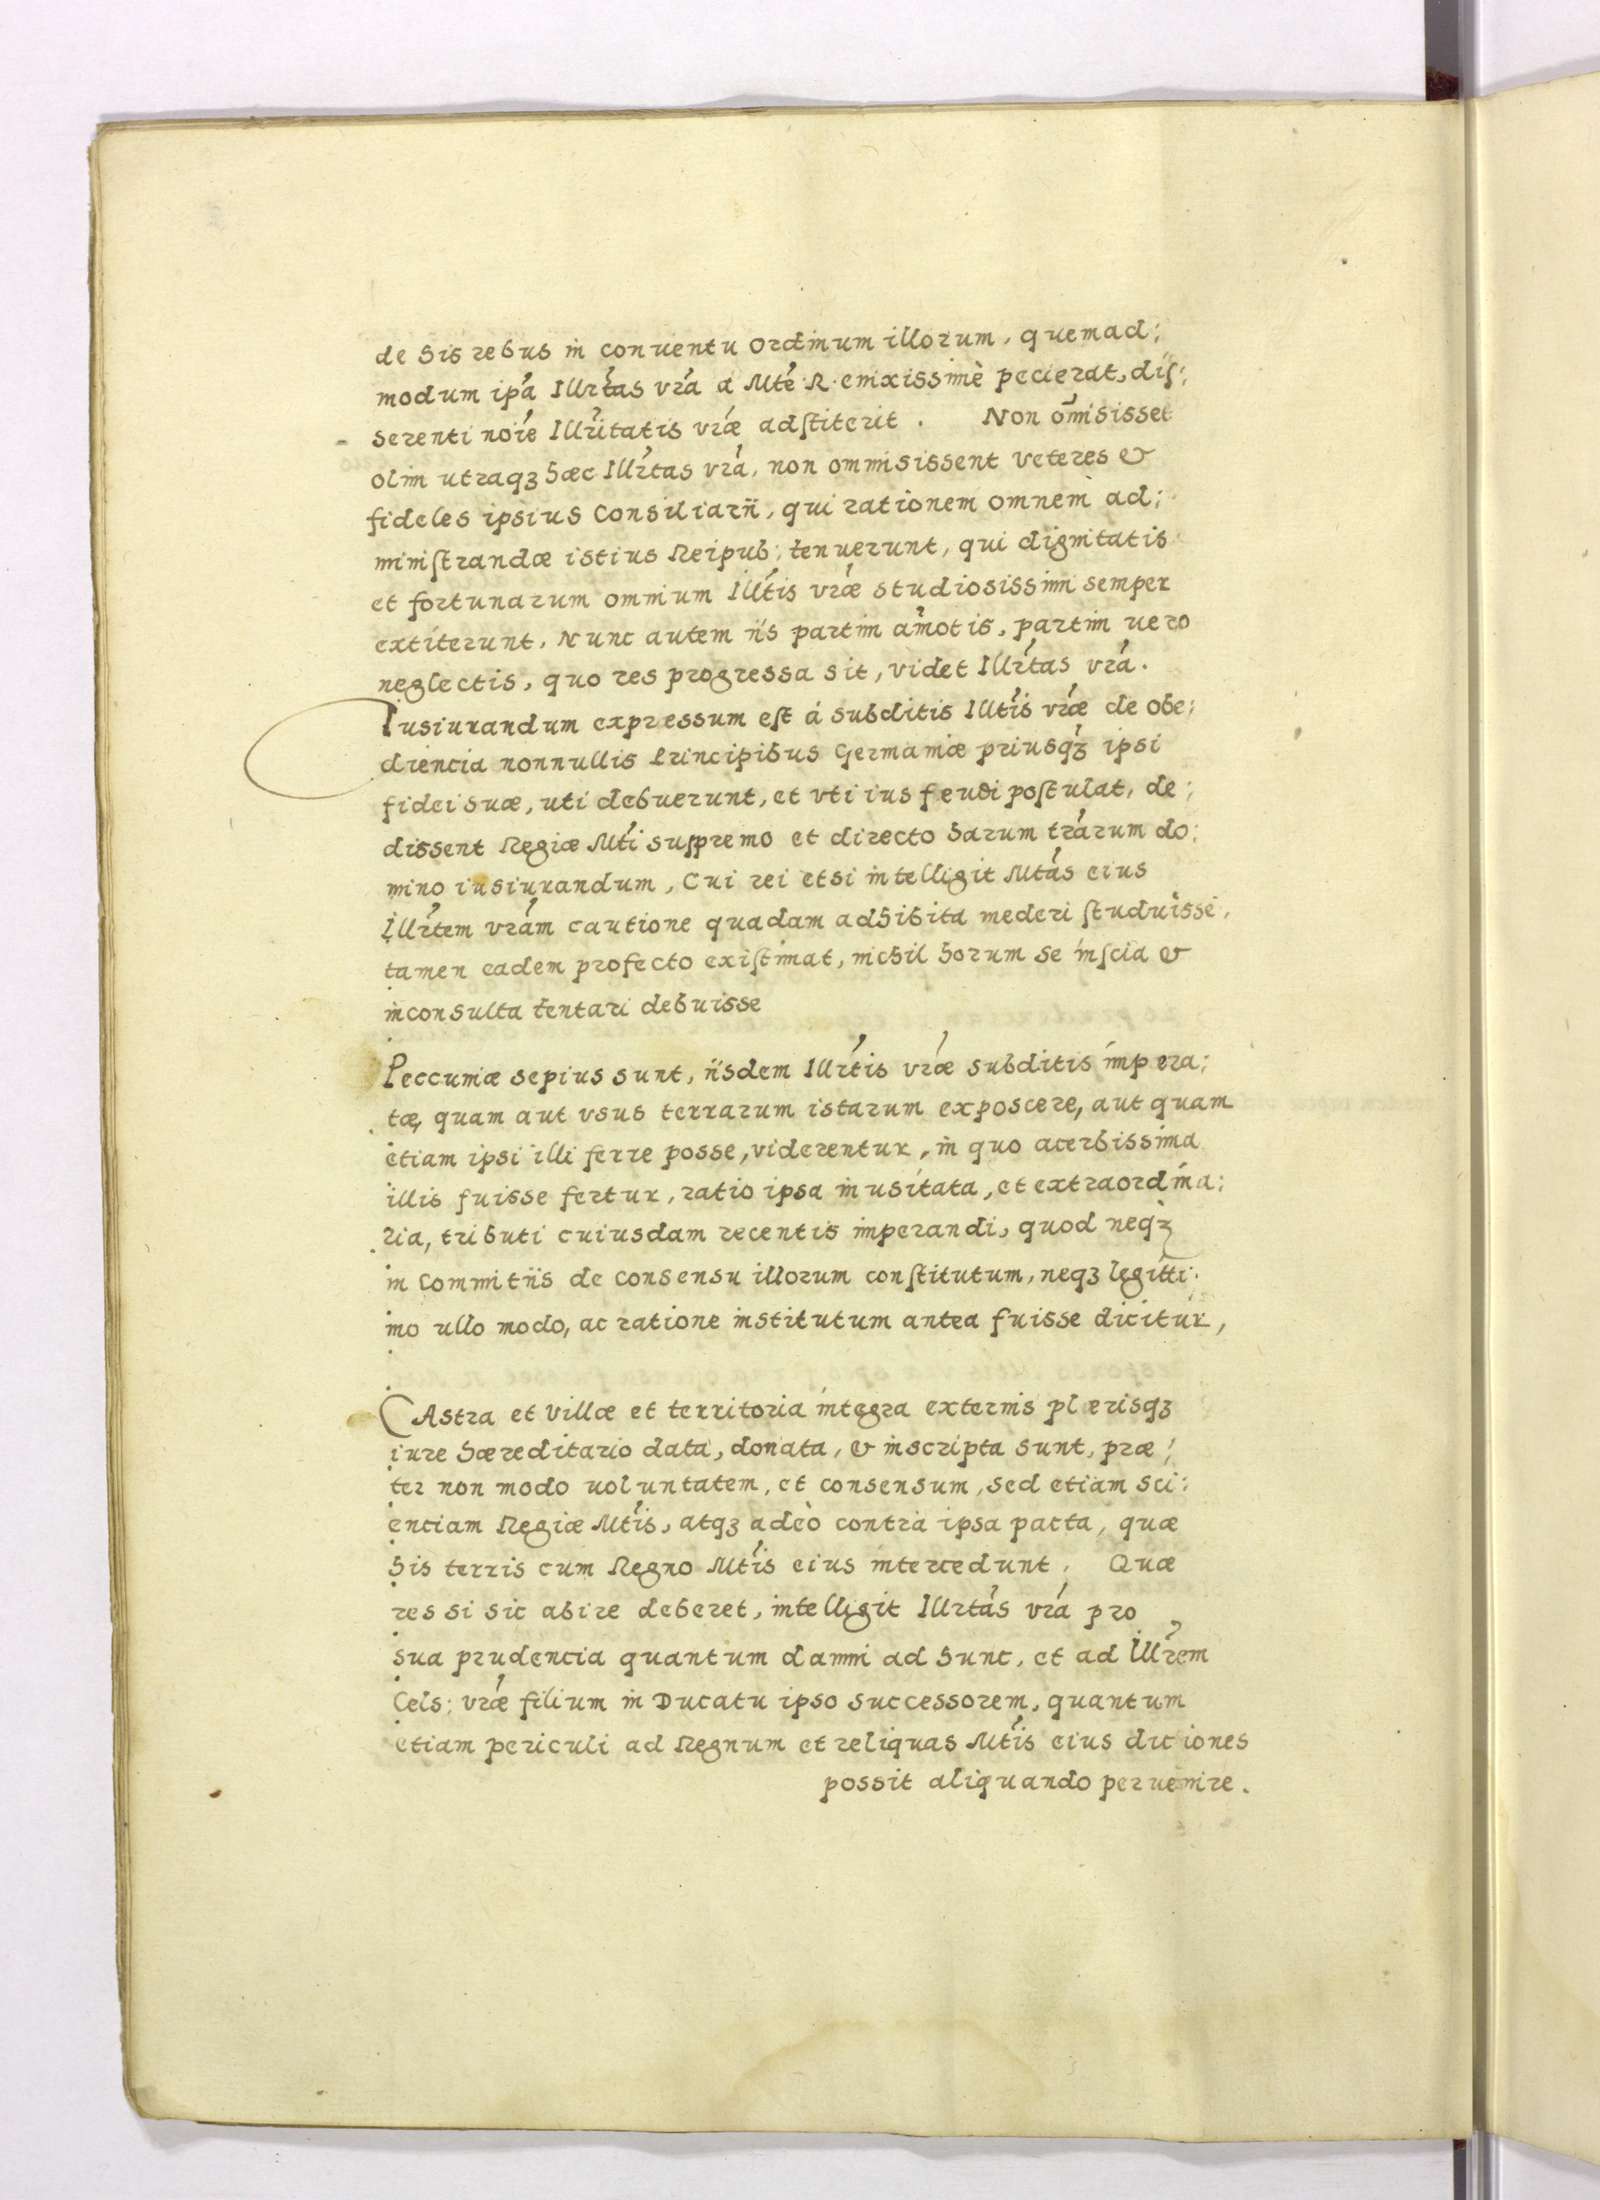 de his rebus in conuentu ordinum illorum, quemad:
modum ipa Illrtas vra a Mte R. enixissime pecierat, dis:
serenti noie Illritatis vræ adstiterit. Non omisisset
olim utraqȝ hæc Illrtas vra, non ommisissent veteres &
fideles ipsius Consiliarii, qui rationem omnem ad:
ministrandæ istius Reipub: tenuerunt, qui dignitatis
et fortunarum omnium Illtis vræ studiosissimi semper
extiterunt, Nunc autem iis partim amotis, partim uero
neglectis, quo res progressa sit, videt Illrtas vra.
Iusiurandum expressum est á subditis Illtis vræ de obe:
diencia nonnullis Principibus Germaniæ priusqȝ ipsi
fidei suæ, uti debuerunt, et vti ius feudi postulat, de:
dissent Regiæ Mti supremo et directo harum trarum do:
mino iusiurandum, Cui rei etsi intelligit Mtas eius
Illrtem vram cautione quadam adhibita mederi studuisse,
tamen eadem profecto existimat, nichil horum se inscia &
inconsulta tentari debuisse
Peccuniæ sepius sunt, iisdem Illrtis vræ subditis impera:
tæ, quam aut vsus terrarum istarum exposcere, aut quam
etiam ipsi illi ferre posse, viderentur, in quo acerbissima
illis fuisse fertur, ratio ipsa inusitata, et extraordina:
ria, tributi cuiusdam recentis imperandi, quod neqȝ
in Commitiis de consensu illorum constitutum, neqȝ legitti:
mo ullo modo, ac ratione institutum antea fuisse dicitur,
Castra et Villæ et territoria integra externis plerisqȝ
iure hæreditario data, donata, & inscripta sunt, præ:
ter non modo uoluntatem, et consensum, sed etiam sci:
enciam Regiæ Mtis, atqȝ adeò contra ipsa pacta, quæ
his terris cum Regno Mtis eius intercedunt. Quæ
res si sic abire deberet, intelligit Illrtas vra pro
sua prudencia quantum damni ad hunc, et ad Illrem
Cels: vræ filium in Ducatu ipso successorem, quantum
etiam periculi ad Regnum et reliquas Mtis eius diciones
possit aliquando peruenire.